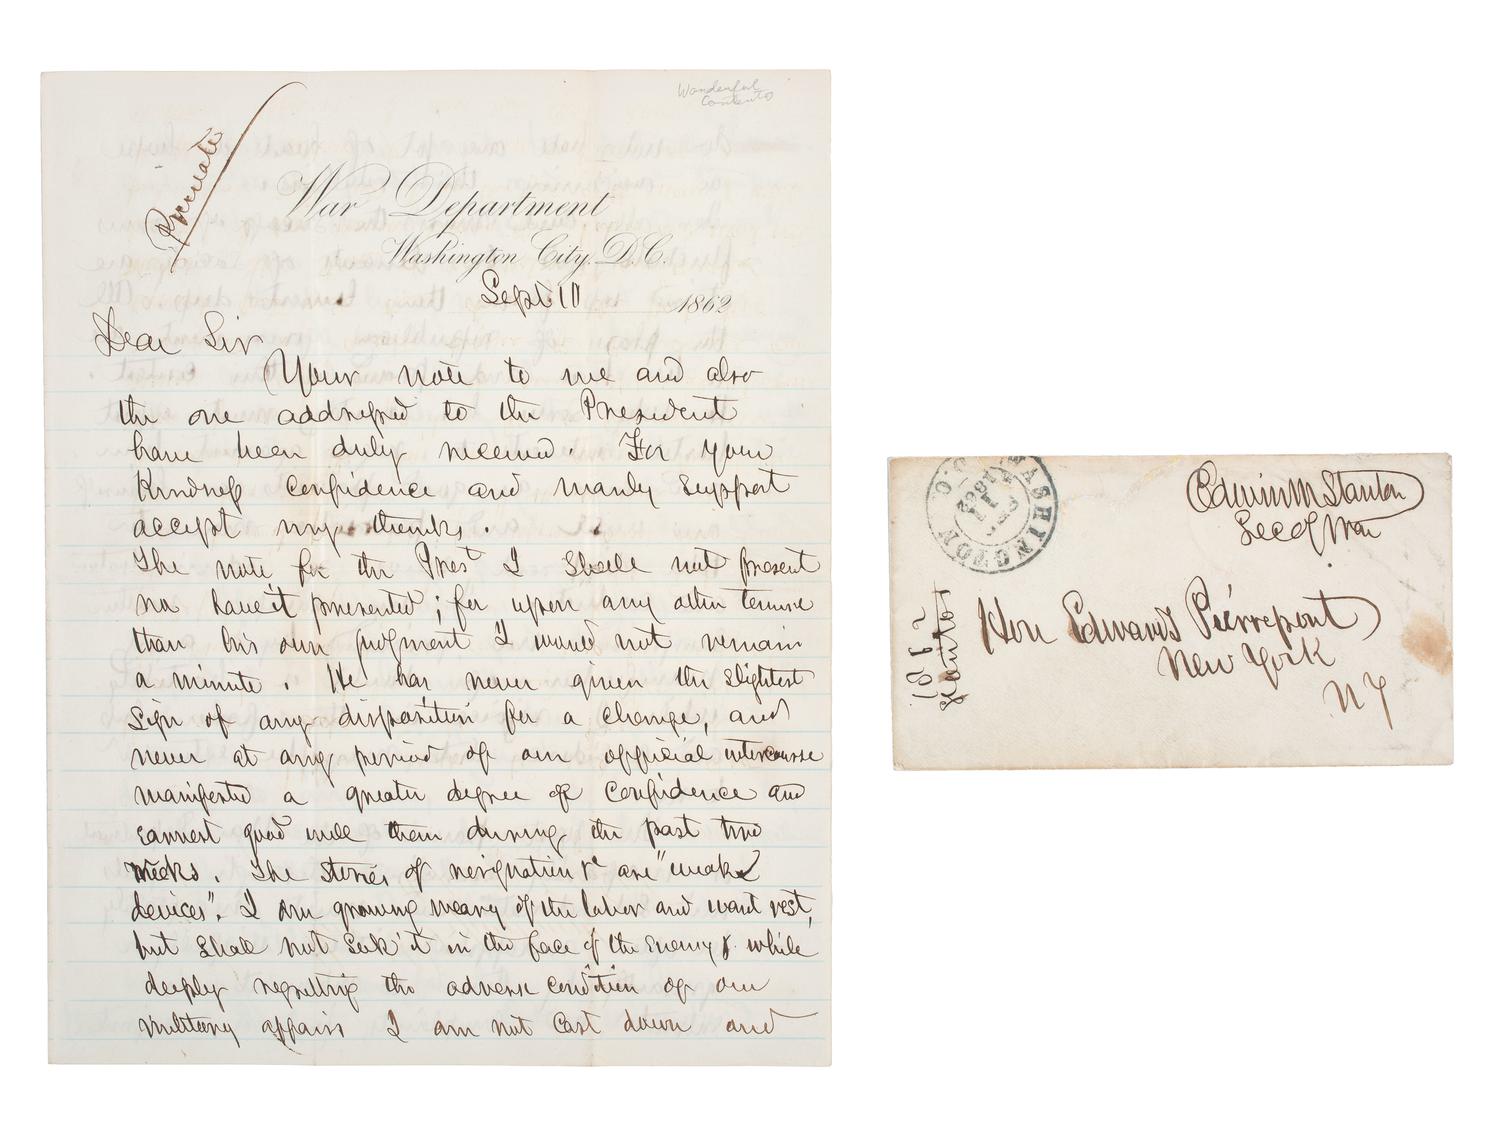 Wonderful
Contents
Private
War Department
Washington City, D.C.
Sept 10 1862
Dear Sir
Your note to me and also
the one addressed to the President
have been duly received. For your
Kindness confidence and manly support
accept my thanks.
The note for the Pres I shall not present
no have it presented; for upon any other tenure
than his own judgment I would not remain
a minute. He has never given the slightest
sign of any disposition for a change, and
never at any period of our official intercourse
manifested a greater degree of confidence and
earnest good will than during the past two
weeks. The stories of resignation &c are "weak
devices". I am growing weary of the labor and want rest,
but shall not seek it in the face of the Enemy & while
deeply regretting the adverse condition of our
military affairs I am not cast down and
WASHINGTON D.C.
SEP 11 1862
Edwin M Stanton
Sec of War
Hon Edwards Pierrepont
New York
N Y
1862
Stanton